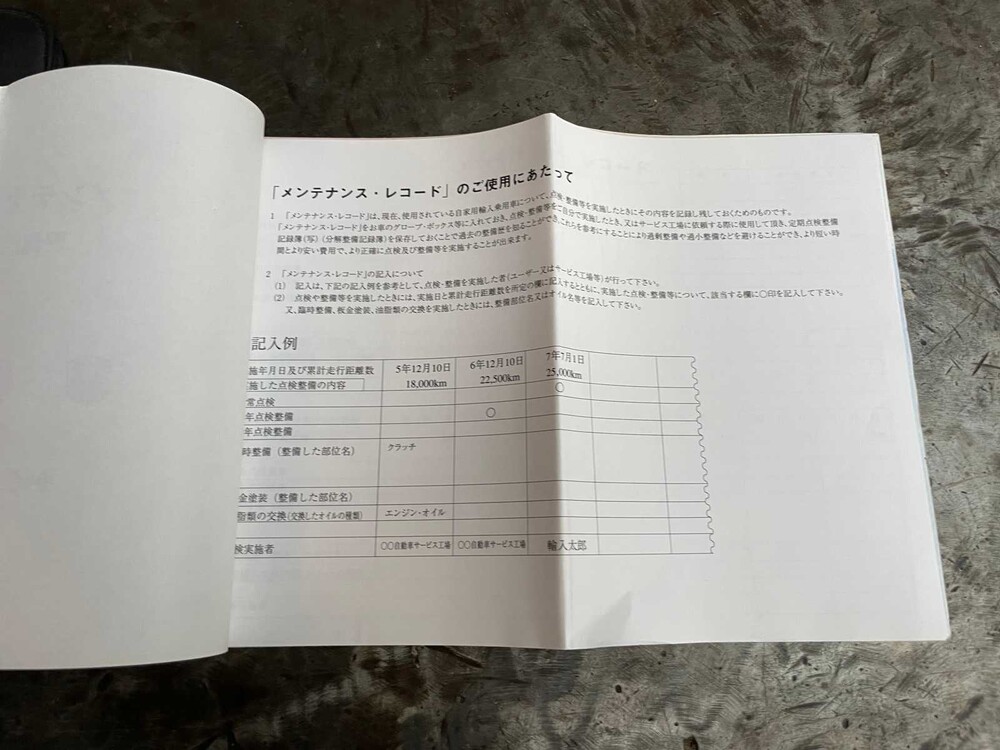 「メンテナンス・レコード」のご使用にあたって
1 「メンテナンス・レコード」は、現在、使用されている自家用輸入乗用車について、点検・整備等を実施したときにその内容を記録し残しておくためのものです。
「メンテナンス・レコード」をお車のグローブ・ボックス等に入れておき、点検・整備等をご自分で実施したとき、又はサービス工場に依頼する際に使用して頂き、定期点検整備
記録簿(写)(分解整備記録簿)を保存しておくことで過去の整備歴を知ることができ、これらを参考にすることにより過剰整備や過小整備などを避けることができ、より短い時
間とより安い費用で、より正確に点検及び整備等を実施することが出来ます。
2 「メンテナンス・レコード」の記入について
(1) 記入は、下記の記入例を参考として、点検・整備を実施した者(ユーザー又はサービス工場等)が行って下さい。
(2) 点検や整備等を実施したときには、実施日と累計走行距離数を所定の欄に記入するとともに、実施した点検・整備等について、該当する欄に○印を記入して下さい。
又、臨時整備、板金塗装、油脂類の交換を実施したときには、整備部位名又はオイル名等を記入して下さい。
記入例
施年月日及び累計走行距離数 5年12月10日 6年12月10日 7年7月1日
施した点検整備の内容 18,000km 22,500km 25,000km
常点検 ○
年点検整備 ○
年点検整備
時整備(整備した部位名) クラッチ
金塗装(整備した部位名)
脂類の交換(交換したオイルの種類) エンジン・オイル
検実施者 ○○自動車サービス工場 ○○自動車サービス工場 輸入太郎